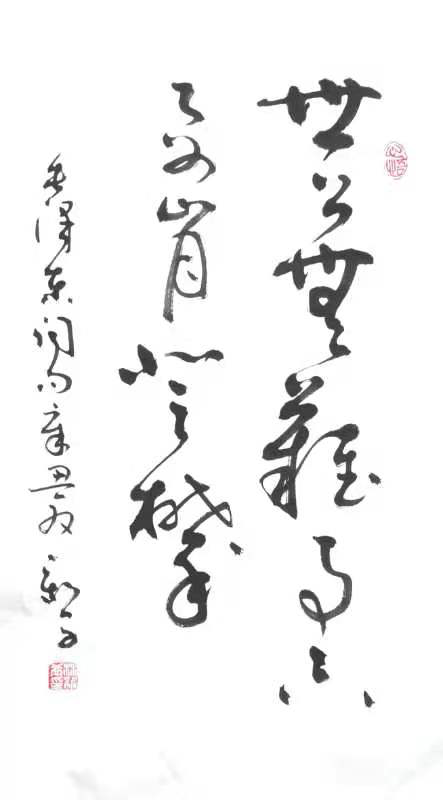 世上無難事只
要肯登攀
毛澤東詞句辛丑